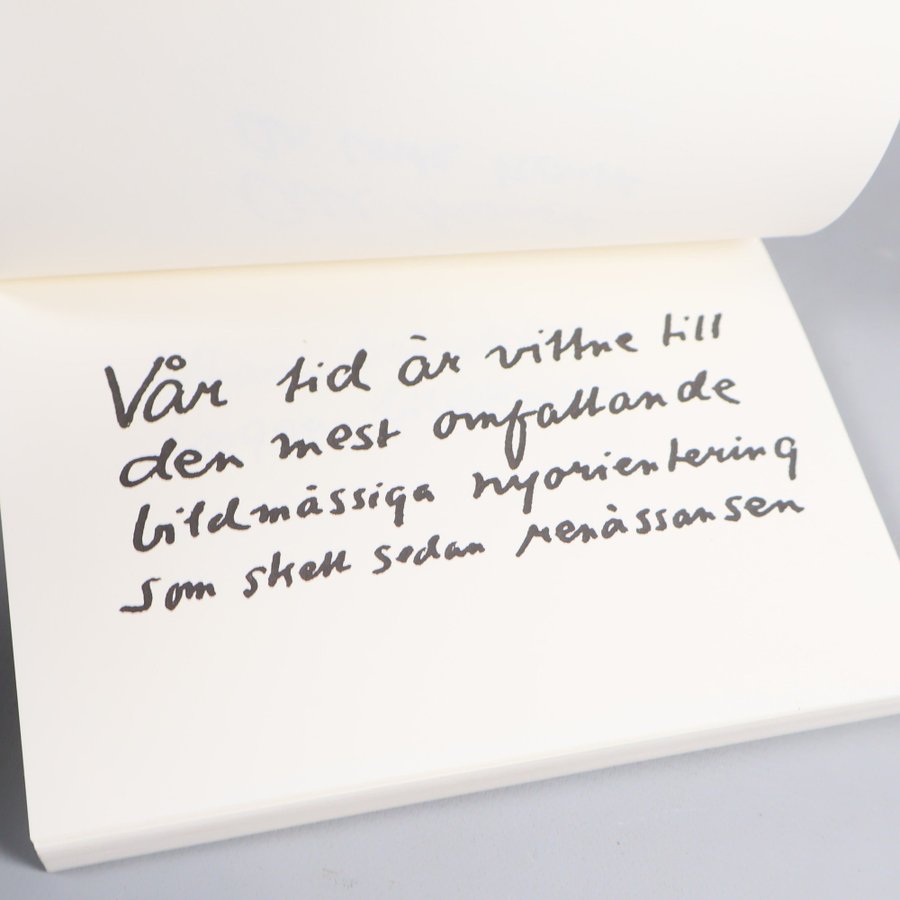 Vår tid är vittne till
den mest omfattande
bildmässiga nyorientering
som skett sedan renässansen